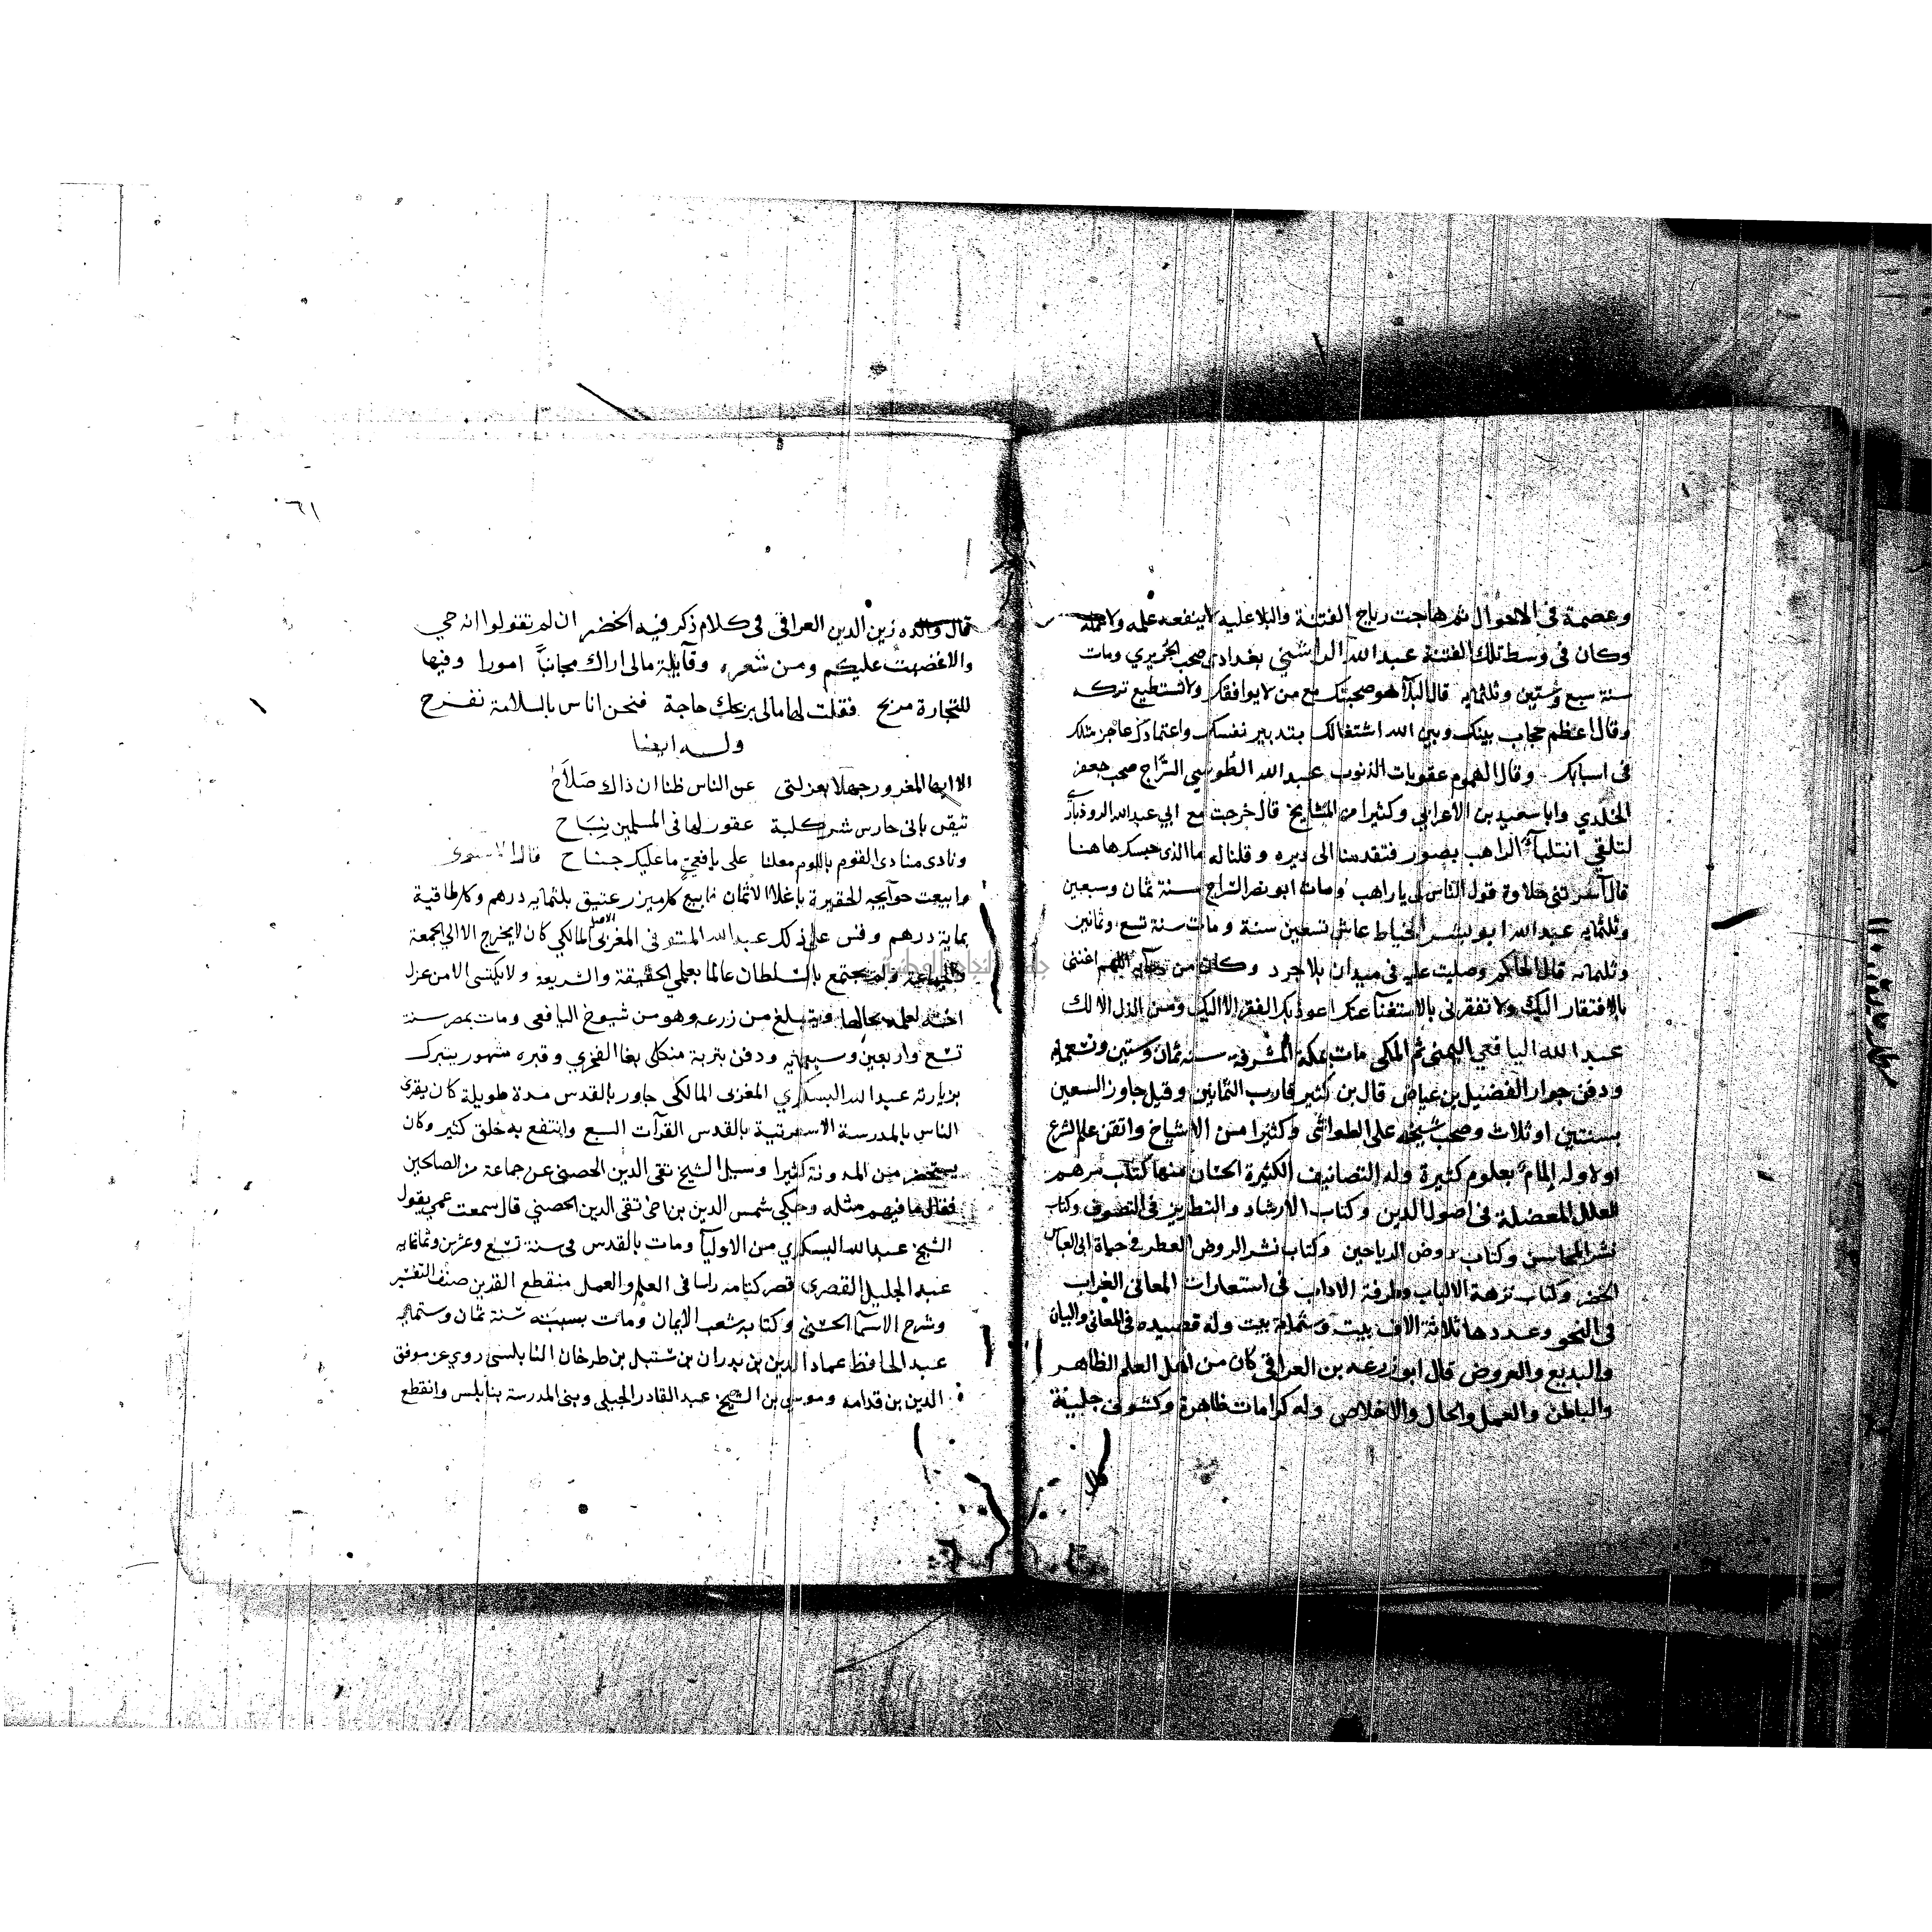 وعصمة في الاحوال ثم هاجت رياح الفتنة والبلا عليه لا ينفعه علمه ولا عمله
وكان في وسط تلك الفتنة عبد الله الراسني بغدادي صحب الجريري ومات
سنة سبع وستين وثلثمايه قال البلا هو صحبتك مع من لا يوافقك ولا تستطيع تركه
وقال اعظم حجاب بينك وبين الله اشتغالك بتدبير نفسك واعتمادك على عاجز مثلك
في اسبابك وقال الهموم عقوبات الذنوب عبد الله الطوسي السراج صحب جعفر
الخلدي وابا سعيد بن الاعرابي وكثيرا من المشايخ قال خرجت مع ابي عبد الله الروذباري
لتلقي الراهب بصور فتقدمنا الى ديره وقلنا له ما الذي حبسك هاهنا
قال اسرتني حلاوة قول الناس لي يا راهب ومات ابو نصر السراج سنة ثمان وسبعين
وثلثمايه عبد الله ابو بشر الخياط عاش تسعين سنة ومات سنة تسع وثمانين
وثلثمايه قال الحاكم وصليت عليه في ميدان بلاجرد وكان من دعايه اللهم اغنني
بالافتقار اليك ولا تفقرني بالاستغنا عنك اعوذ بك الفقر الا اليك ومن الذل الا لك
عبد الله اليافعي اليمني ثم المكي مات بمكة المشرفه سنه ثمان وستين وسبعمايه
ودفن جوار الفضيل بن عياض قال بن كثير قارب الثمانين وقيل جاوز السبعين
بسنتين او ثلاث وصحب شيخه علي الطواشي وكثيرا من الاشياخ واتقن علم الشرع
اولا وله المام بعلوم كثيرة وله التصانيف الكثيرة الحسان منها كتاب مرهم
العلل المعضلة في اصول الدين وكتاب الارشاد والتطريز في التصوف وكتاب
نشر المحاسن وكتاب روض الرياحين وكتاب نشر الروض العطر في حياة ابي العباس
الخضر وكتاب نزهة الالباب وطرفة الاداب في استعارات المعاني الغراب
في النحو وعددها ثلاثة الاف بيت وستماية بيت وله قصيده في المعاني والبيان
والبديع والعروض قال ابو زرعه بن العراقي كان من اهل العلم الظاهر
والباطن والعمل والحال والاخلاص وله كرامات ظاهرة وكشوف جلية
قال
٦١
قال والده زين الدين العراقي في كلام ذكر فيه الخضر ان لم تقولوا انه حي
والا غضبت عليكم ومن شعره وقايلة مالي اراك مجانبا امورا وفيها
للتجارة مربح فقلت لها مالي بربحك حاجة فنحن اناس بالسلامة نفرح
وله ايضا
الا ايها المغرور جهلا بعزلتي عن الناس ظنا ان ذاك صلاح
تيقن باني حارس شر كلبة عقور لها في المسلمين نباح
ونادى منادي القوم باللوم معلنا على يافعي ما عليك جناح قال الاسنوي
ما بيعت حوايجه الحقيرة باغلا الاثمان بيع كل ميزر عتيق بثلثمايه درهم وكل طاقية
بماية درهم وقس على ذلك عبد الله المنوفي المغربي الاصل المالكي كان لا يخرج الا الى الجمعة
ولم يجتمع بالسلطان عالما بعلمي الحقيقة والشريعة ولا يكتسى الا من غزل
اخته لعلمه بحالها ويبلغ من زرعه وهو من شيوخ اليافعي ومات بمصر سنة
تسع واربعين وسبعمايه ودفن بتربة منكلي بغا الفخري وقبره مشهور يتبرك
بزيارته عبد الله البسكري المغربي المالكي جاور بالقدس مدة طويلة كان يقري
الناس بالمدرسة بالقدس القرآت السبع وانتفع به خلق كثير وكان
يستحضر من المدونة كثيرا وسيل الشيخ تقي الدين الحصني عن جماعة من الصالحين
فقال ما فيهم مثله وحكي شمس الدين بن اخي تقي الدين الحصني قال سمعت عمي يقول
الشيخ عبد الله البسكري من الاوليا ومات بالقدس في سنة تسع وعشرين وثمانمايه
عبد الجليل القصري قصر كتامه راسا في العلم والعمل منقطع القرين صنف التفسير
وشرح الاسما الحسنى وكتابه شعب الايمان ومات بسبته سنة ثمان وستمايه
عبد الحافظ عماد الدين بن بدران بن شبل بن طرخان النابلسي روي عن موفق
الدين بن قدامه وموسى بن الشيخ عبد القادر الجيلي وبنى المدرسة بنابلس وانقطع